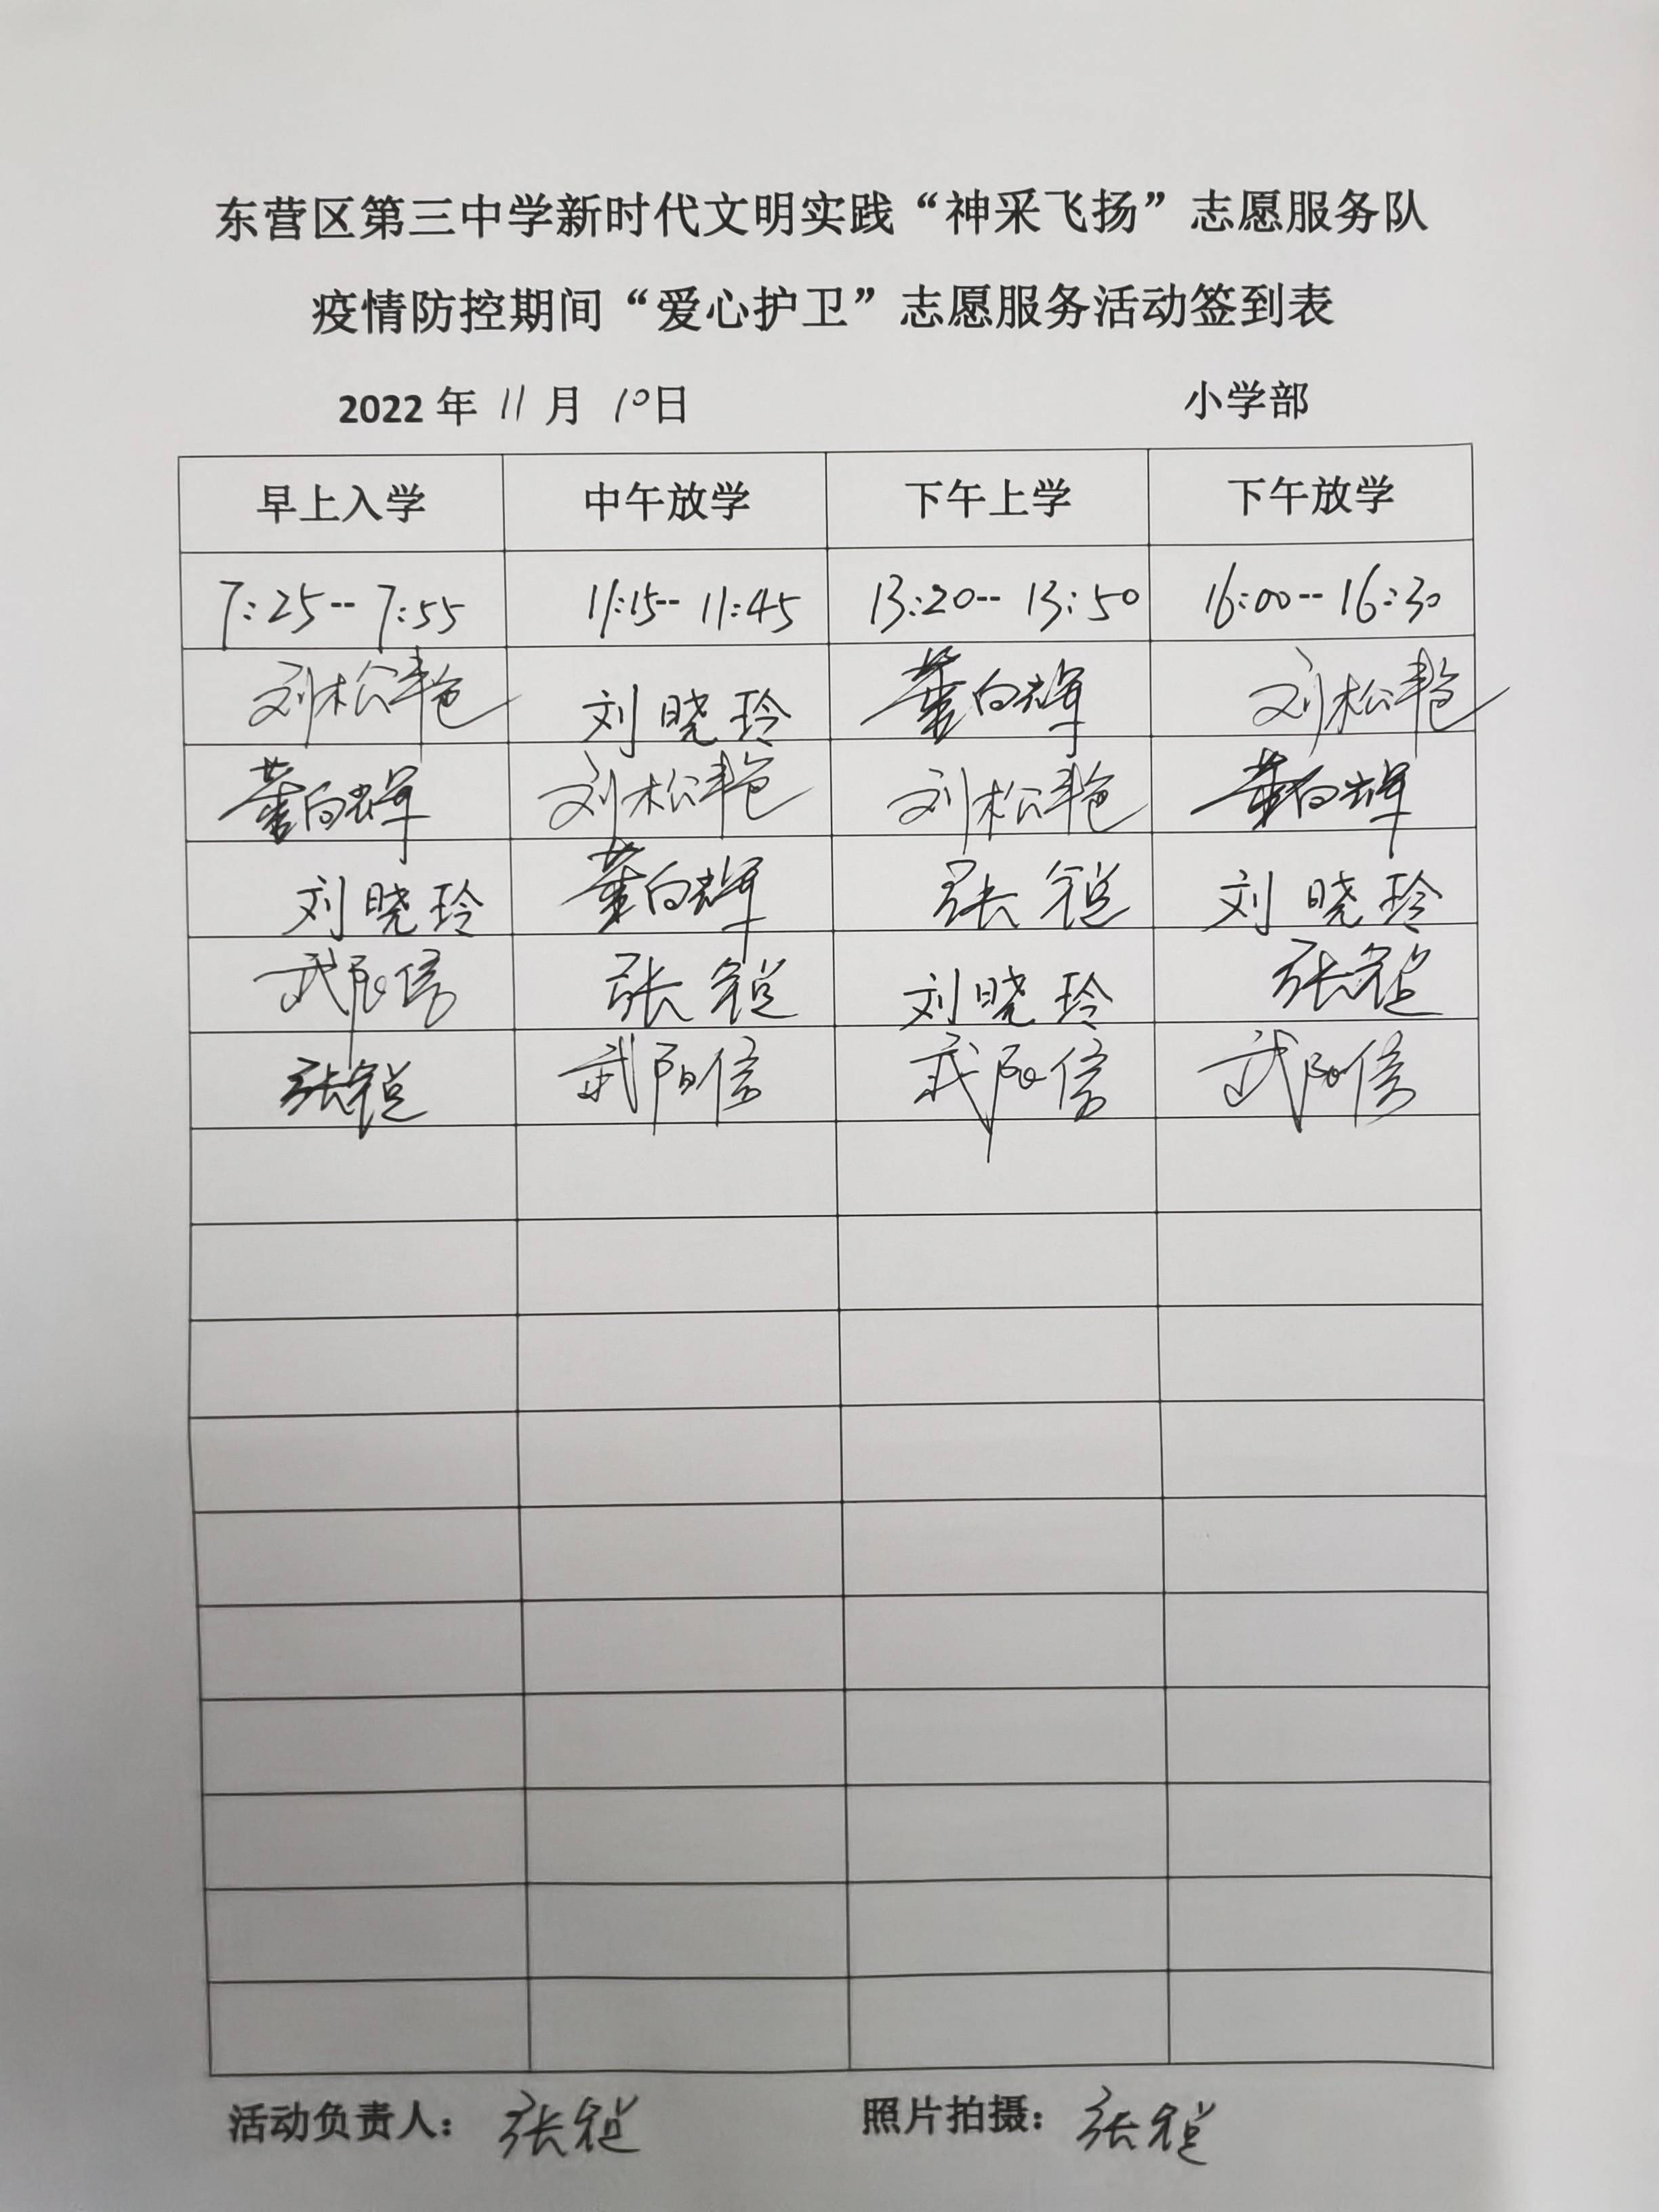 东营区第三中学新时代文明实践“神采飞扬”志愿服务队
疫情防控期间“爱心护卫”志愿服务活动签到表
2022 年 11 月 10日 小学部
早上入学 中午放学 下午上学 下午放学
7:25--7:55 11:15--11:45 13:20--13:50 16:00--16:30
刘松艳 刘晓玲 董向辉 刘松艳
董向辉 刘松艳 刘松艳 董向辉
刘晓玲 董向辉 张 刘晓玲
武阳信 张 刘晓玲 张
张 武阳信 武阳信 武阳信
活动负责人: 张 照片拍摄: 张